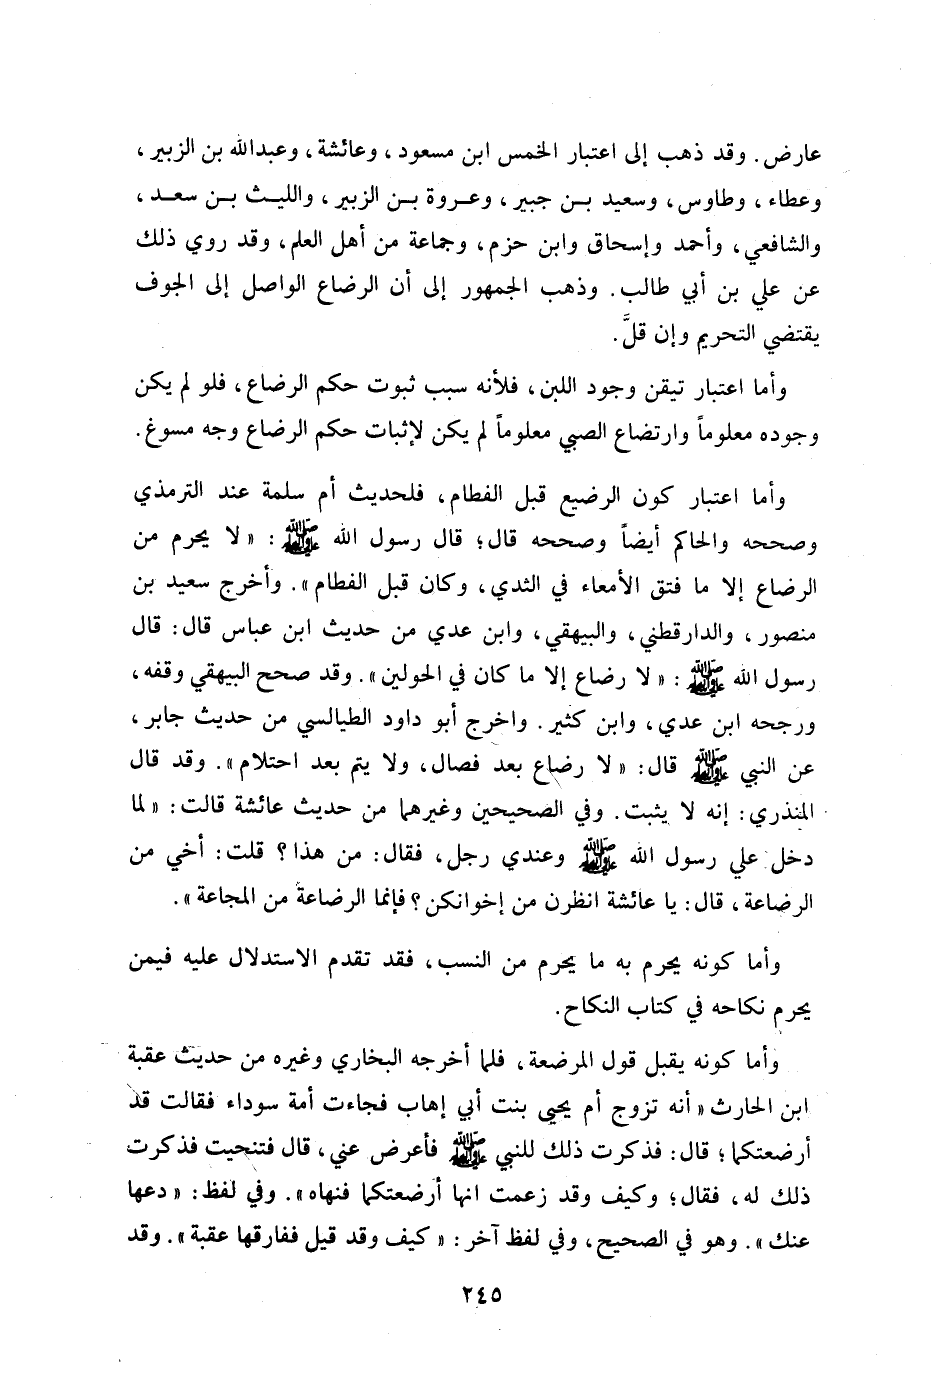 عارض. وقد ذهب إلى اعتبار الخمس ابن مسعود، وعائشة، وعبدالله بن الزبير،
وعطاء، وطاوس، وسعيد بن جبير، وعروة بن الزبير، والليث بن سعد،
والشافعي، وأحمد وإسحاق وابن حزم، وجماعة من أهل العلم، وقد روي ذلك
عن علي بن أبي طالب. وذهب الجمهور إلى أن الرضاع الواصل إلى الجوف
يقتضي التحريم وإن قلَّ.
وأما اعتبار تيقن وجود اللبن، فلأنه سبب ثبوت حكم الرضاع، فلو لم يكن
وجوده معلوماً وارتضاع الصبي معلوماً لم يكن لإثبات حكم الرضاع وجه مسوغ.
وأما اعتبار كون الرضيع قبل الفطام، فلحديث أم سلمة عند الترمذي
وصححه والحاكم أيضاً وصححه قال؛ قال رسول الله ﷺ: «لا يحرم من
الرضاع إلا ما فتق الأمعاء في الثدي، وكان قبل الفطام». وأخرج سعيد بن
منصور، والدارقطني، والبيهقي، وابن عدي من حديث ابن عباس قال: قال
رسول الله ﷺ: «لا رضاع إلا ما كان في الحولين». وقد صحح البيهقي وقفه،
ورجحه ابن عدي، وابن كثير. واخرج أبو داود الطيالسي من حديث جابر،
عن النبي ﷺ قال: «لا رضاع بعد فصال، ولا يتم بعد احتلام». وقد قال
المنذري: إنه لا يثبت. وفي الصحيحين وغيرهما من حديث عائشة قالت: «لما
دخل علي رسول الله ﷺ وعندي رجل، فقال: من هذا؟ قلت: أخي من
الرضاعة، قال: يا عائشة انظرن من إخوانكن؟ فإنما الرضاعة من المجاعة».
وأما كونه يحرم به ما يحرم من النسب، فقد تقدم الاستدلال عليه فيمن
يحرم نكاحه في كتاب النكاح.
وأما كونه يقبل قول المرضعة، فلما أخرجه البخاري وغيره من حديث عقبة
ابن الحارث «أنه تزوج أم يحيى بنت أبي إهاب فجاءت أمة سوداء فقالت قد
أرضعتكما؛ قال: فذكرت ذلك للنبي ﷺ فأعرض عني، قال فتنحيت فذكرت
ذلك له، فقال؛ وكيف وقد زعمت انها أرضعتكما فنهاه». وفي لفظ: «دعها
عنك». وهو في الصحيح، وفي لفظ آخر: «كيف وقد قيل ففارقها عقبة». وقد
٢٤٥